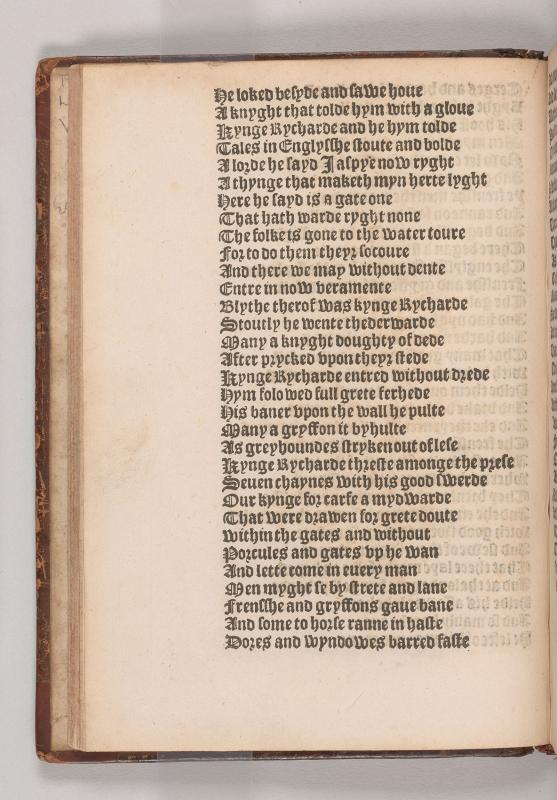 He loked besyde and sawe houe
A knyght that tolde hym with a gloue
Kynge Rycharde and he hym tolde
Tales in Englysshe stoute and bolde
A lorde he sayd I aspye now ryght
A thynge that maketh myn herte lyght
Here he sayd is a gate one
That hath warde ryght none
The folke is gone to the water toure
For to do them theyr socoure
And there we may without dente
Entre in now veramente
Blythe therof was kynge Rycharde
Stoutly he wente thederwarde
Many a knyght doughty of dede
After prycked vpon theyr stede
Kynge Rycharde entred without drede
Hym folowed full grete ferhede
His baner vpon the wall he pulte
Many a gryffon it byhulte
As greyhoundes stryken out of lese
Kynge Rycharde threste amonge the prese
Seuen chaynes with his good swerde
Our kynge for carfe a mydwarde
That were drawen for grete doute
within the gates and without
Porcules and gates vp he wan
And lette come in euery man
Men myght se by strete and lane
Frensshe and gryffons gaue bane
And some to horse ranne in haste
Dores and wyndowes barred faste